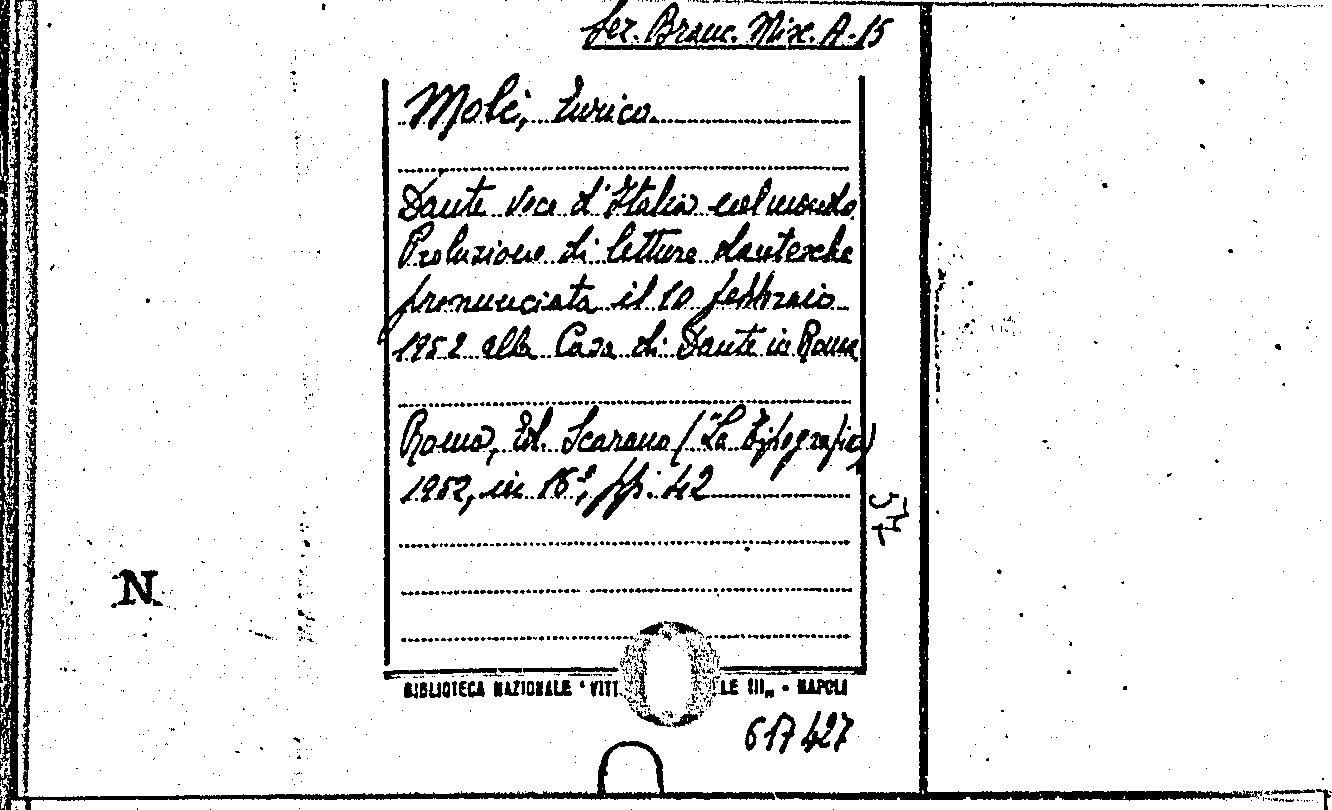 Sez. Branc. Misc. A-15
Molè, Enrico
Dante voce d'Italia nel mondo
Prolusione di letture dantesche
pronunciata il 10 febbraio
1952 alla Casa di Dante in Roma
Roma, Ed. Scarano ("La Tipografica)
1952, in 16°, pp. 42
57
N
BIBLIOTECA NAZIONALE "VITT LE III„ - NAPOLI
617427